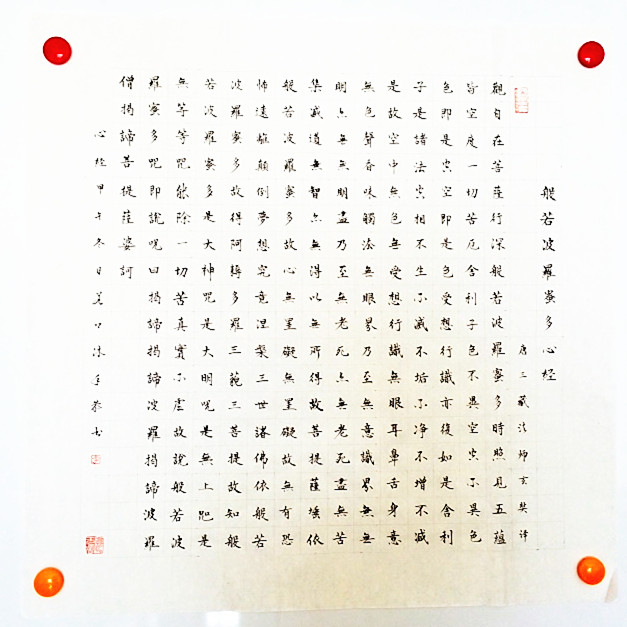 般若波羅蜜多心经
唐三藏法师玄奘译
觀自在菩薩行深般若波羅蜜多時照見五蘊
皆空度一切苦厄舍利子色不異空空不異色
色即是空空即是色受想行識亦復如是舍利
子是諸法空相不生不滅不垢不净不增不減
是故空中無色無受想行識無眼耳鼻舌身意
無色聲香味觸法無眼界乃至無意識界無無
明亦無無明盡乃至無老死亦無老死盡無苦
集滅道無智亦無得以無所得故菩提薩埵依
般若波羅蜜多故心無罣礙無罣礙故無有恐
怖遠離顛倒夢想究竟涅槃三世諸佛依般若
波羅蜜多故得阿耨多羅三藐三菩提故知般
若波羅蜜多是大神咒是大明咒是無上咒是
無等等咒能除一切苦真實不虛故說般若波
羅蜜多咒即說咒曰揭諦揭諦波羅揭諦波羅
僧揭諦菩提薩婆訶
心经甲午冬日恭书